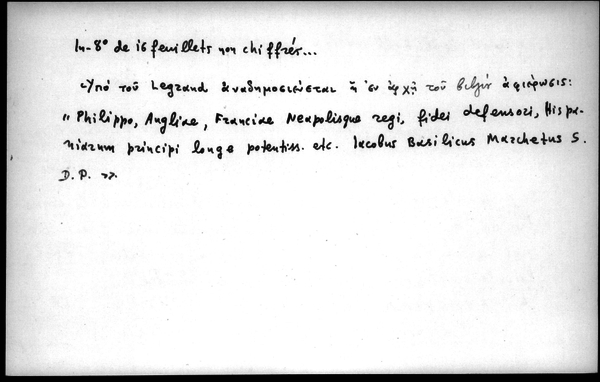 In-8° de 16 feuillets non chiffrés...
Ὑπὸ τοῦ Legrand ἀναδημοσιεύεται ἡ ἐν ἀρχῇ τοῦ βιβλίου ἀφιέρωσις:
"Philippo, Angliae, Franciae Neapolisque regi, fidei defensori, Hispa-
niarum principi longe potentiss. etc. Iacobus Basilicus Marchetus S.
D. P. »